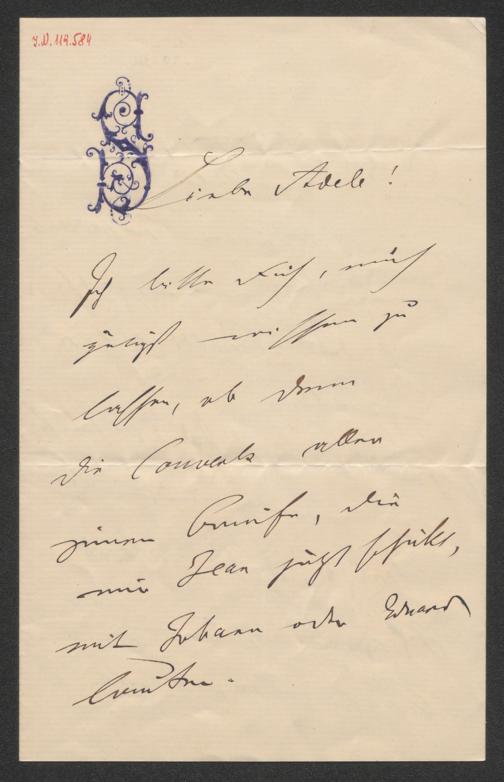 J.N. 119.584
S
Liebe Adele!
Ich bitte Dich, mich
gütigst wissen zu
lassen, ob denn
die Couverts aller
jener Briefe, die
mir Jean jetzt schickt,
mit Johann oder Eduard
lauten.